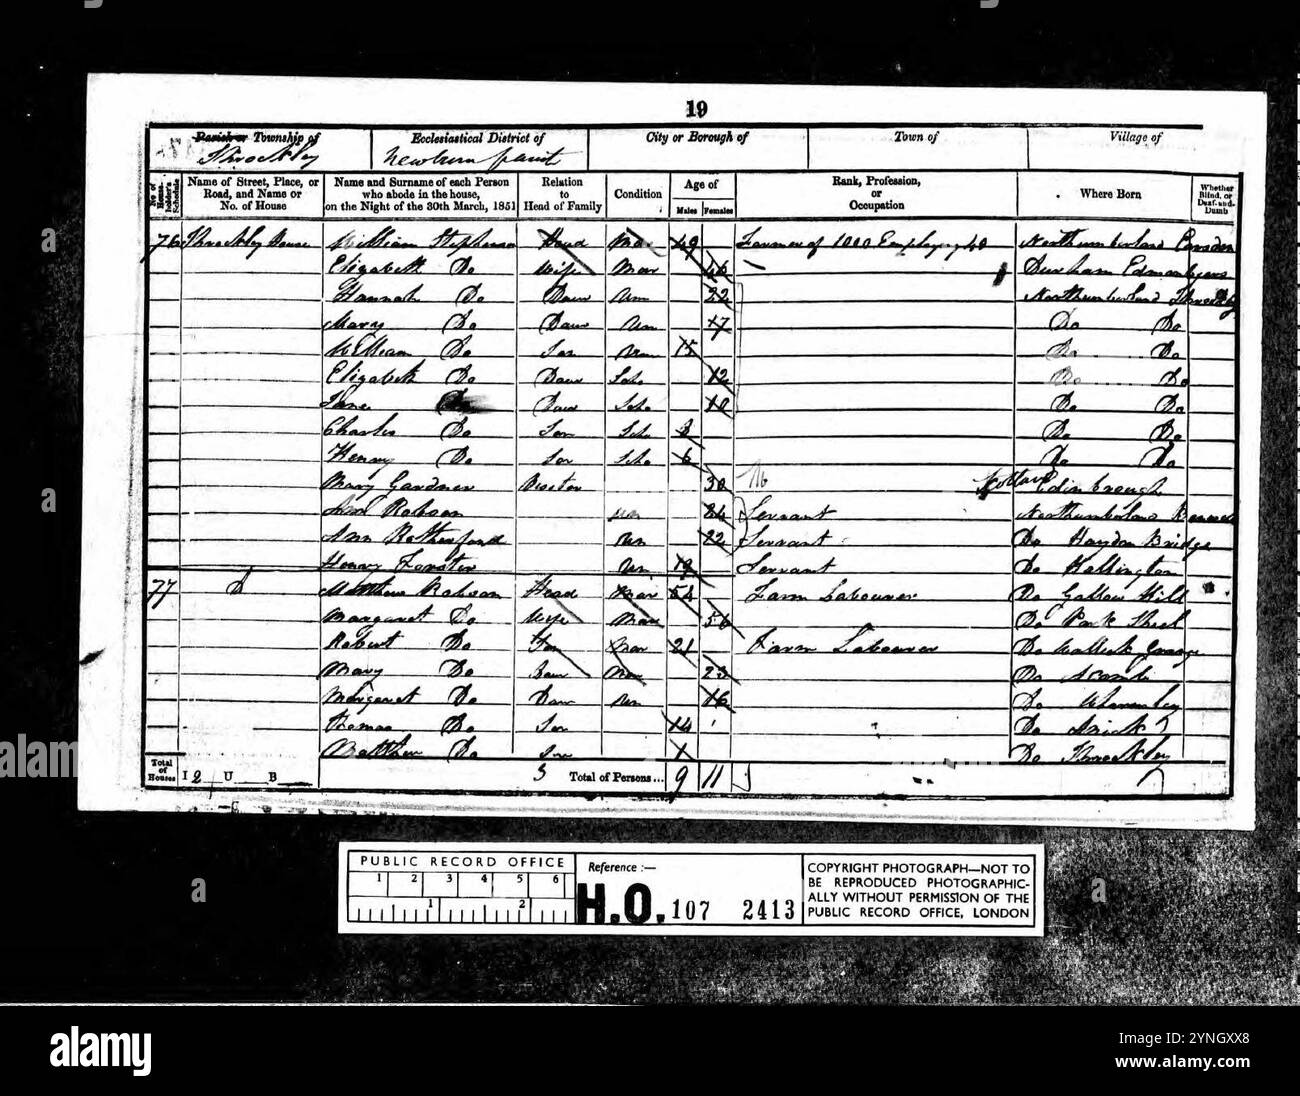 19
Parish or Township of
Throckley
Ecclesiastical District of
Newburn parish
City or Borough of
Town of
Village of
No of House-holder's Schedule
Name of Street, Place, or Road, and Name or No. of House
Name and Surname of each Person who abode in the house, on the Night of the 30th March, 1851
Relation to Head of Family
Condition
Age of
Males Females
Rank, Profession, or Occupation
Where Born
Whether Blind, or Deaf-and-Dumb
76 Throckley House William Stephenson Head Mar 49 Farmer of 1000 Employing 40 Northumberland
Elizabeth Do Wife Mar 46 Durham Edmondbyers
Hannah Do Daur Un 22 Northumberland Throckley
Mary Do Daur Un 17 Do Do
William Do Son Un 15 Do Do
Elizabeth Do Daur Scho 12 Do Do
Jane Do Daur Scho 10 Do Do
Charles Do Son Scho 8 Do Do
Henry Do Son Scho 6 Do Do
Mary Gardner Visitor 30 Scotland Edinbrough
Ann Robson Un 24 Servant Northumberland
Ann Rutherford Un 22 Servant Do Haydon Bridge
Henry Forster Un 19 Servant Do Hallington
77 D Matthew Robson Head Mar 54 Farm Labourer Do Gallow Hill
Margaret Do Wife Mar 56 Do Park Shiel
Robert Do Son Mar 21 Farm Labourer Do Grange
Mary Do Daur Mar 23 Do Acomb
Margaret Do Daur Un 16 Do
Thomas Do Son 14 Do
Matthew Do Son 1 Do Throckley
Total of Houses I 2 U B
3 Total of Persons... 9 11
PUBLIC RECORD OFFICE
1 2 3 4 5 6
1 2
Reference :—
H.O. 107 2413
COPYRIGHT PHOTOGRAPH—NOT TO
BE REPRODUCED PHOTOGRAPHIC-
ALLY WITHOUT PERMISSION OF THE
PUBLIC RECORD OFFICE, LONDON
alamy
Image ID: 2YNGXX8
www.alamy.com